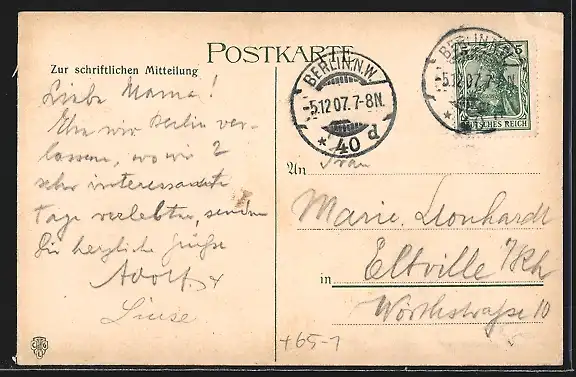 POSTKARTE
Zur schriftlichen Mitteilung
Liebe Mama!
Ehe wir Berlin ver-
lassen, wo wir 2
sehr interessante
Tage verlebten, senden
Dir herzliche Grüße
Adolf &
Liese
BERLIN.N.W.
5.12 07. 7-8N.
* 40 d
BERLIN.N.W.
5.12 07. 7-8N.
5
DEUTSCHES REICH
An
Frau
Marie Leonhardt
in
Eltville a/Rh
Wörthstraße 10
+65-1